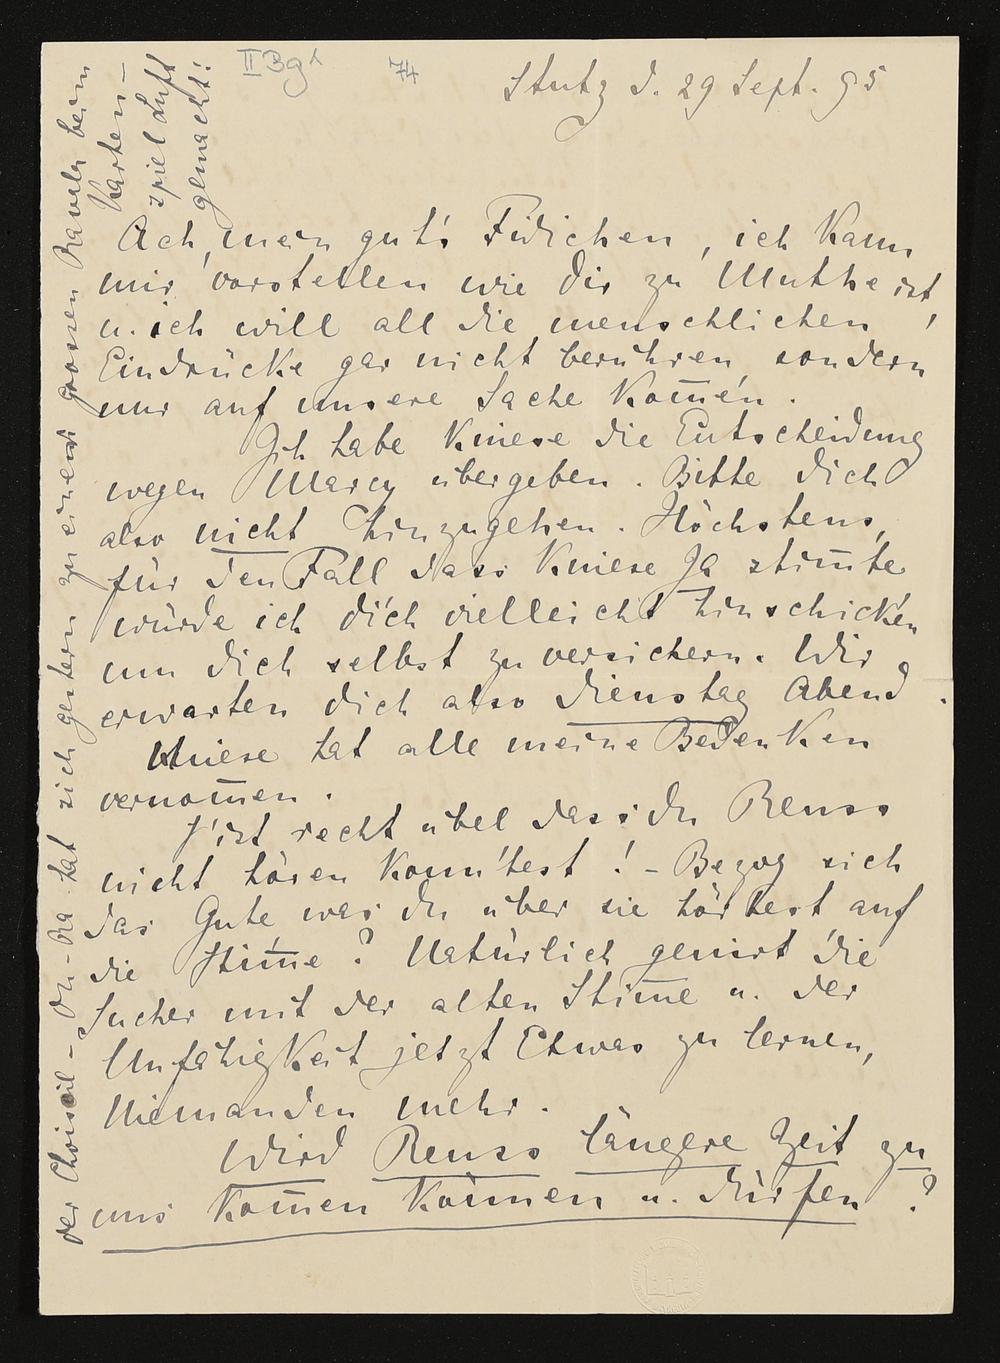 II Bg¹ 74
Stutz d. 29 Sept. 95
Ach, mein gut's Fidichen, ich kann
mir vorstellen wie dir zu Muthe ist,
u. ich will all die menschlichen
Eindrücke gar nicht berühren, sondern
nur auf unsere Sache kom̅en.
Ich habe Kniese die Entscheidung
wegen Marcy übergeben. Bitte dich
also nicht hinzugehen. Höchstens,
für den Fall dass Kniese Ja stim̅te
würde ich dich vielleicht hinschicken
um dich selbst zu versichern. Wir
erwarten dich also Dienstag Abend.
Kniese hat alle meine Bedenken
vernom̅en.
S'ist recht übel dass du Reuss
nicht hören konntest! – Bezog sich
das Gute was du über sie hörtest auf
die Stim̅e? Natürlich genirt die
Sucher mit der alten Stim̅e u. der
Unfähigkeit jetzt Etwas zu lernen,
Niemanden mehr.
Wird Reuss längere Zeit zu
uns kom̅en können u. dürfen?
der – On-Ra hat sich gestern zu einem grossen beim
Karten-
spiel Luft
gemacht!